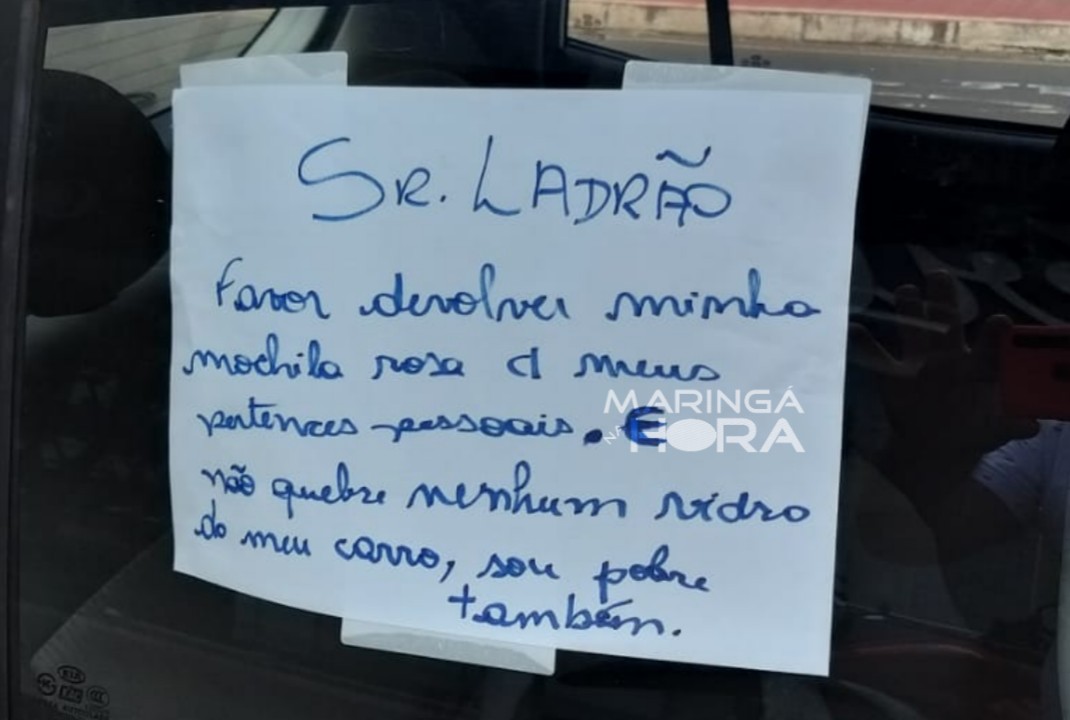 SR. LADRÃO
Favor devolver minha
mochila rosa c/ meus
pertences pessoais. E
não quebre nenhum vidro
do meu carro, sou pobre
também.
MARINGÁ
NA HORA
KIA